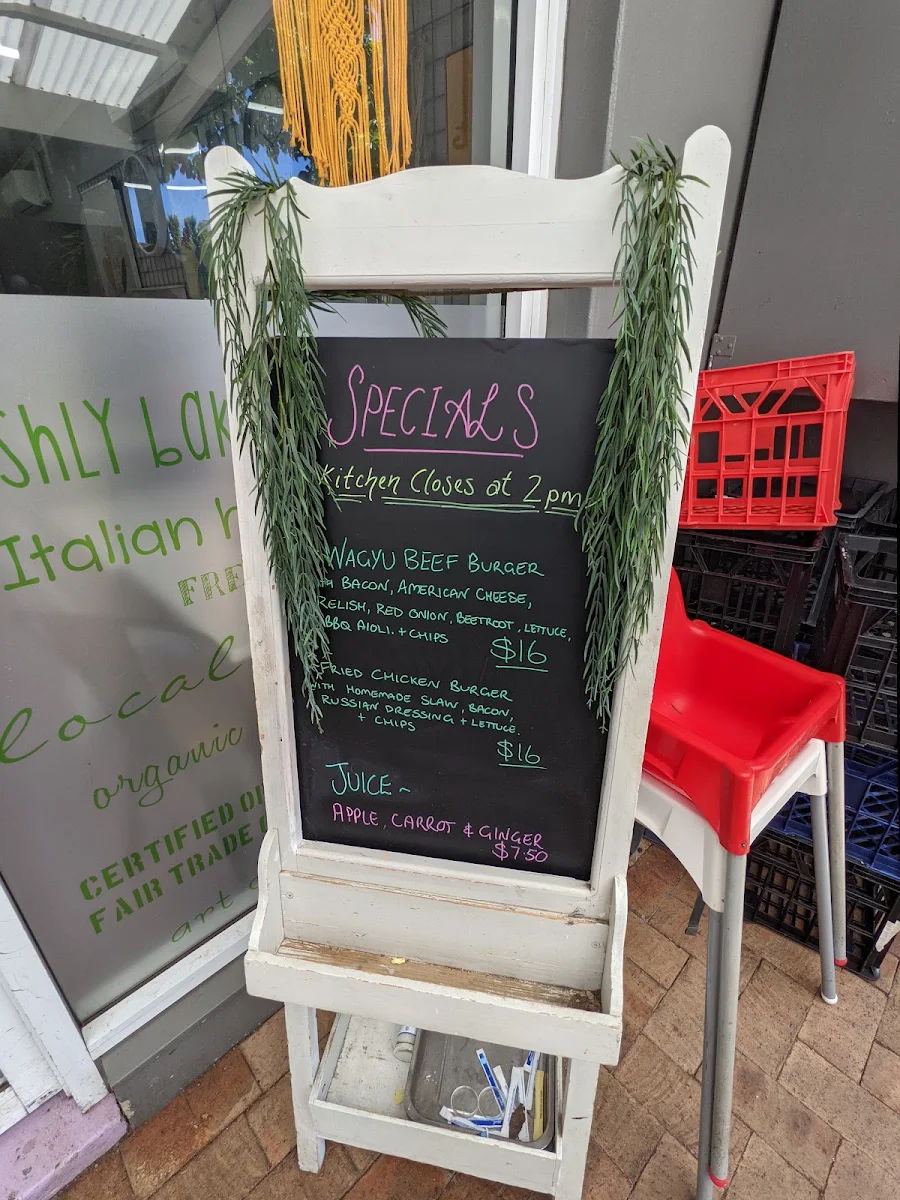 SPECIALS
Kitchen Closes at 2pm
WAGYU BEEF BURGER
BACON, AMERICAN CHEESE,
RELISH, RED ONION, BEETROOT, LETTUCE,
BBQ AIOLI. + CHIPS
$16
FRIED CHICKEN BURGER
WITH HOMEMADE SLAW, BACON,
RUSSIAN DRESSING + LETTUCE.
+ CHIPS
$16
JUICE ~
APPLE, CARROT & GINGER
$7.50
Italian
local
organic
CERTIFIED
FAIR TRADE
art